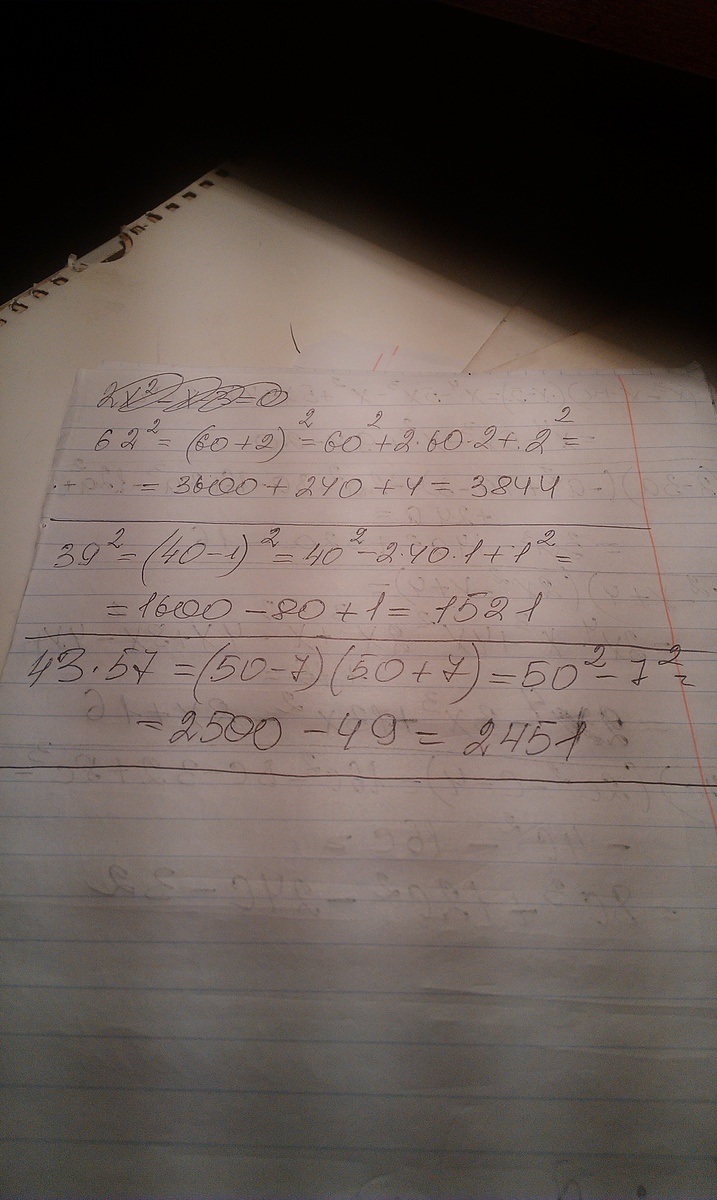 62² = (60+2)² = 60² + 2·60·2 + 2² =
= 3600 + 240 + 4 = 3844
39² = (40-1)² = 40² - 2·40·1 + 1² =
= 1600 - 80 + 1 = 1521
43·57 = (50-7)(50+7) = 50² - 7² =
= 2500 - 49 = 2451